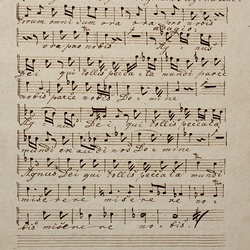 trum omnium ora ora pro nobis
adagio
ora pro nobis A gnus
Dei qui tollis peccata mundi parce
nobis parce nobis Do mine
Agnus Dei qui tollis peccata
mundi exaudi nos Do mine
Agnus Dei qui tollis peccata mundi
miserere miserere no
bis miserere no bis.